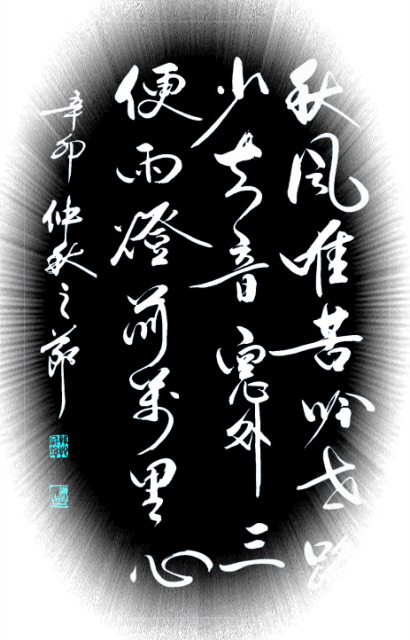 秋风唯苦吟世路
少知音窻外三
便雨燈前萬里心
辛卯仲秋之節